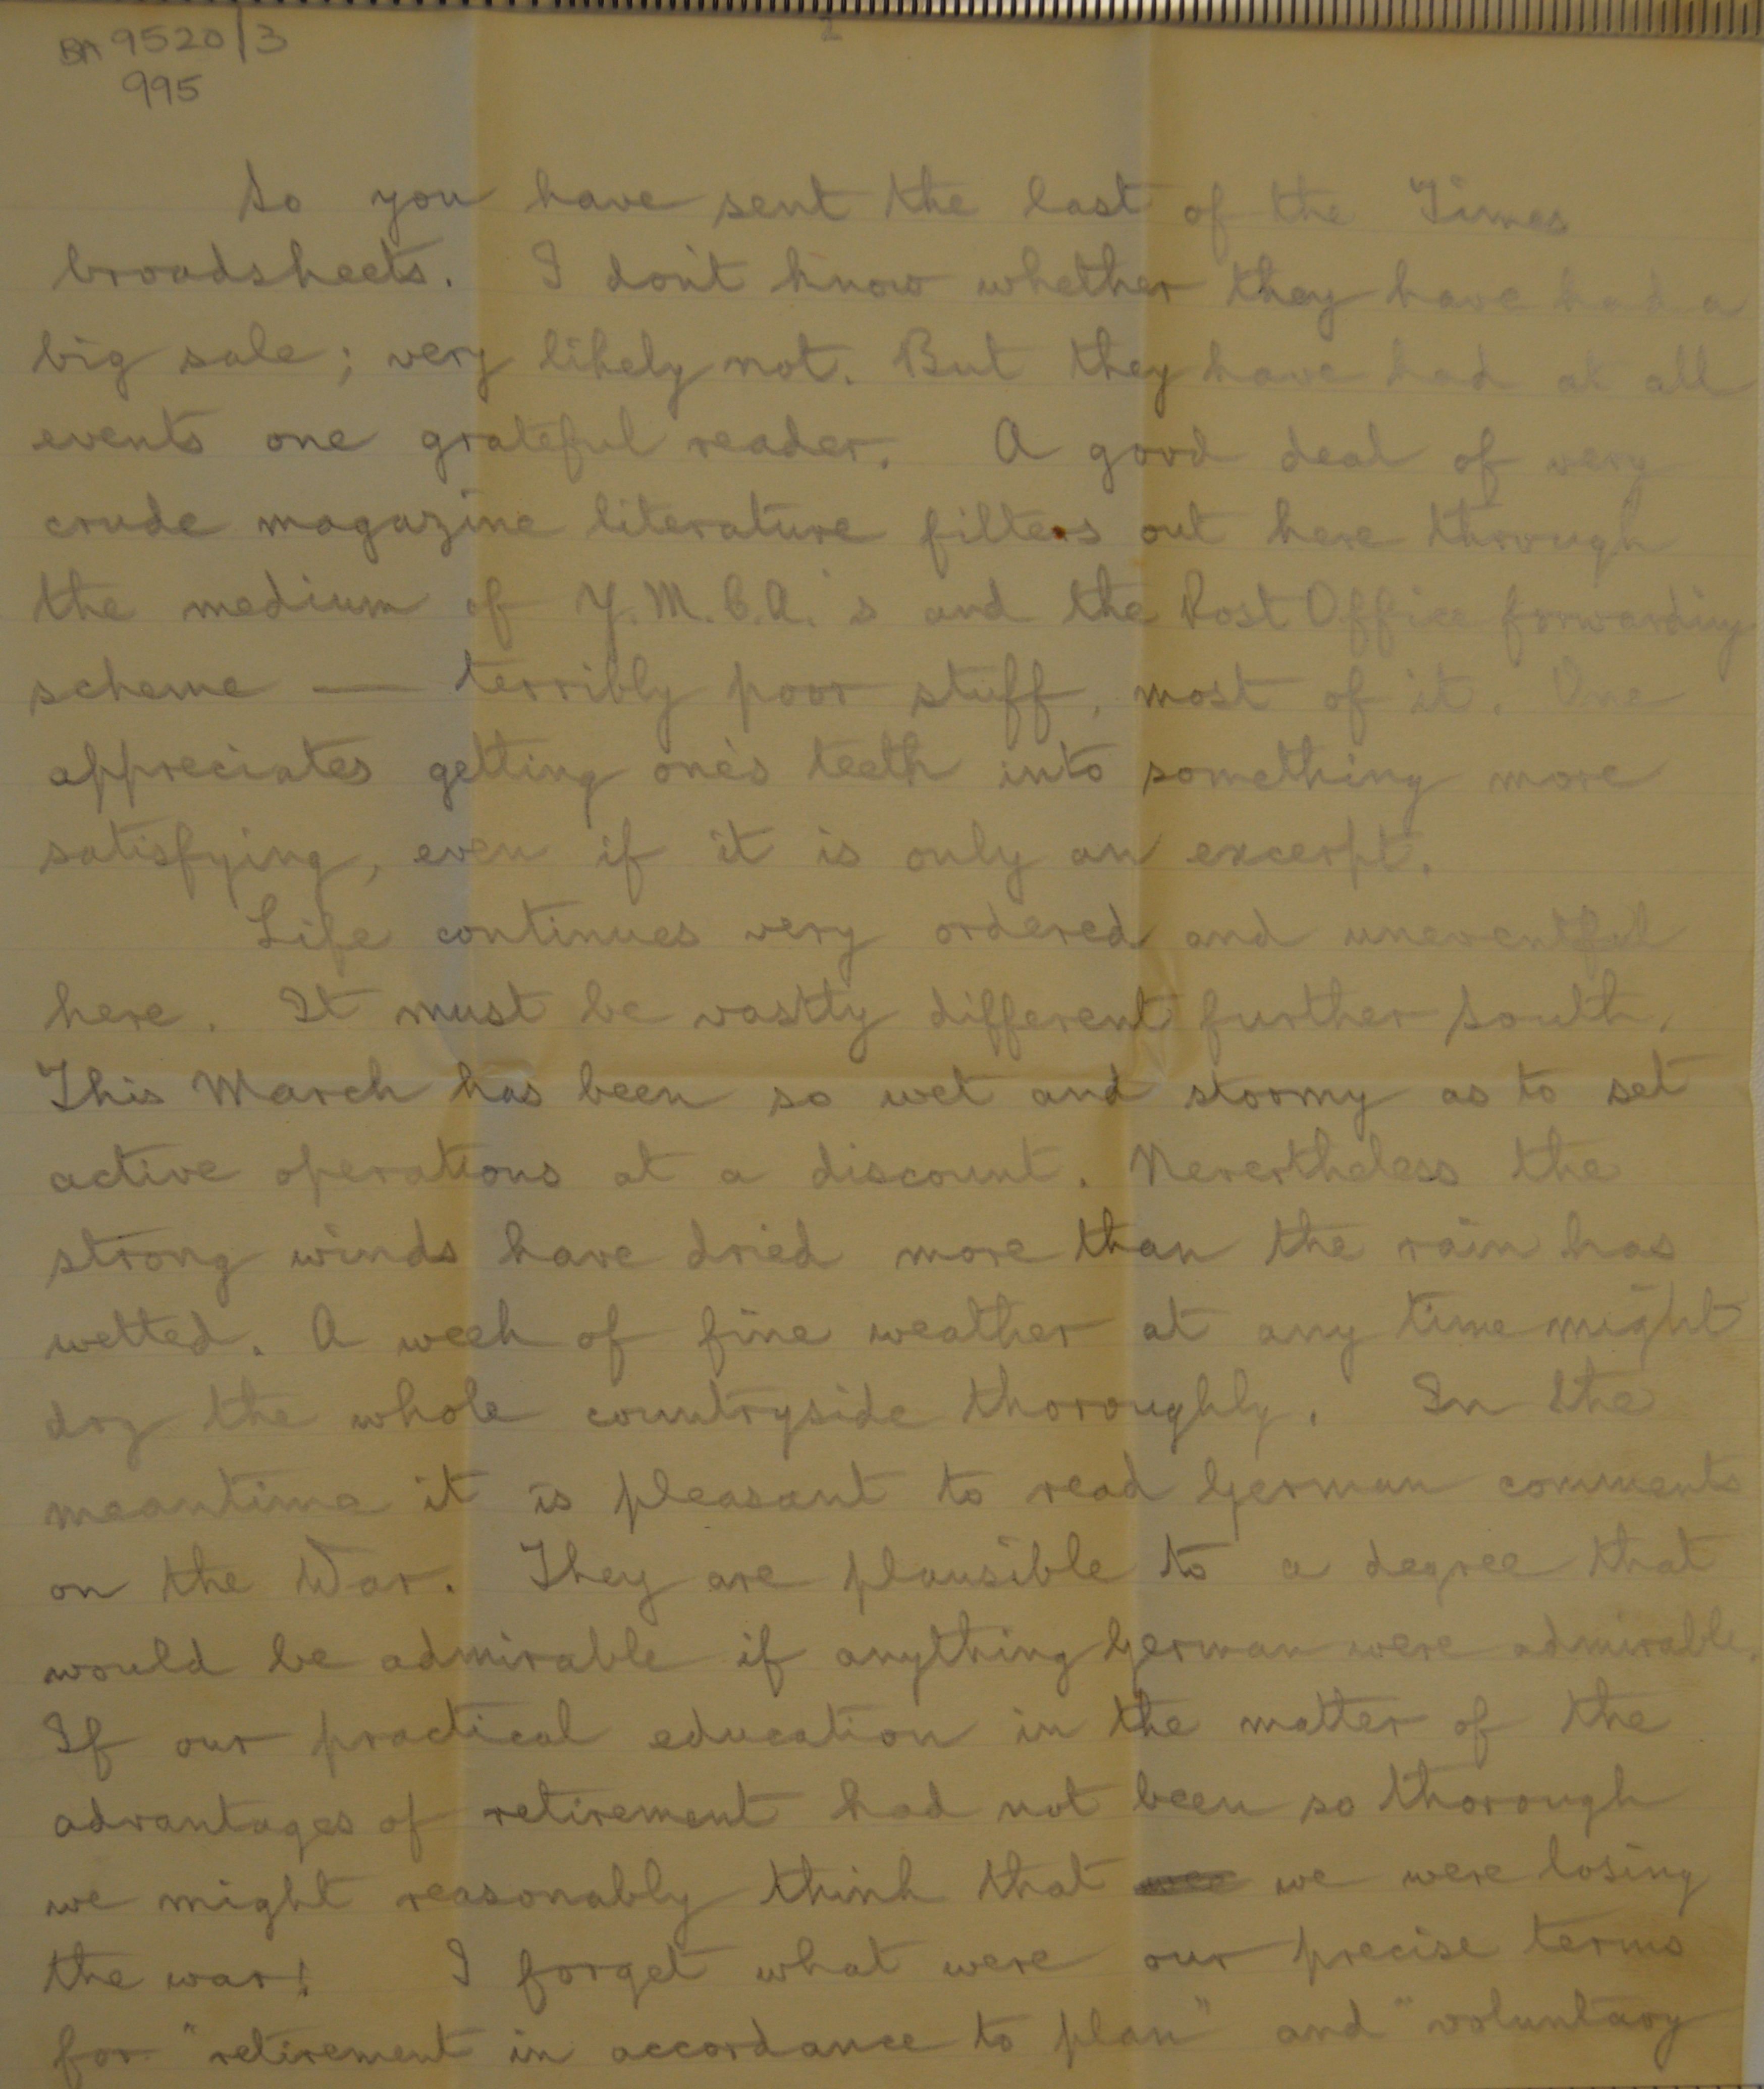 BA 9520/3
995
2
So you have sent the last of the Times
broadsheets. I don't know whether they have had a
big sale; very likely not. But they have had at all
events one grateful reader. A good deal of very
crude magazine literature filters out here through
the medium of Y.M.C.A.'s and the Post Office forwarding
scheme — terribly poor stuff, most of it. One
appreciates getting one's teeth into something more
satisfying, even if it is only an excerpt.
Life continues very ordered and uneventful
here. It must be vastly different further south.
This March has been so wet and stormy as to set
active operations at a discount. Nevertheless the
strong winds have dried more than the rain has
wetted. A week of fine weather at any time might
dry the whole countryside thoroughly. In the
meantime it is pleasant to read German comments
on the War. They are plausible to a degree that
would be admirable if anything German were admirable.
If our practical education in the matter of the
advantages of retirement had not been so thorough
we might reasonably think that we were losing
the war! I forget what were our precise terms
for "retirement in accordance to plan" and "voluntary